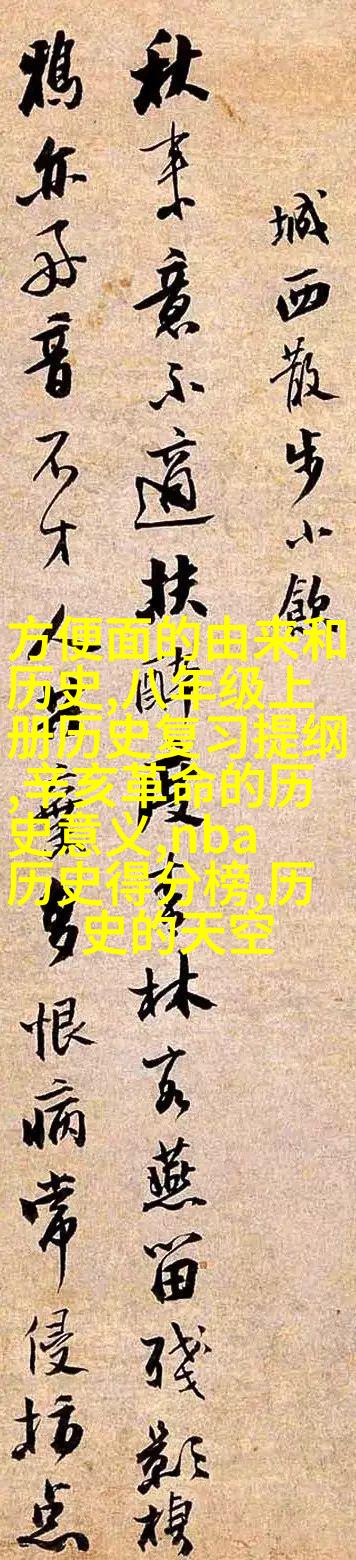 城西散步小飲
秋来意不適扶醉度林客燕留殘影棲
鴉亦好音不才人多恨病常侵点
方便面的由来和
历史,八年级上
册历史复习提纲
,辛亥革命的历
史意义,nba
历史得分榜,历
史的天空